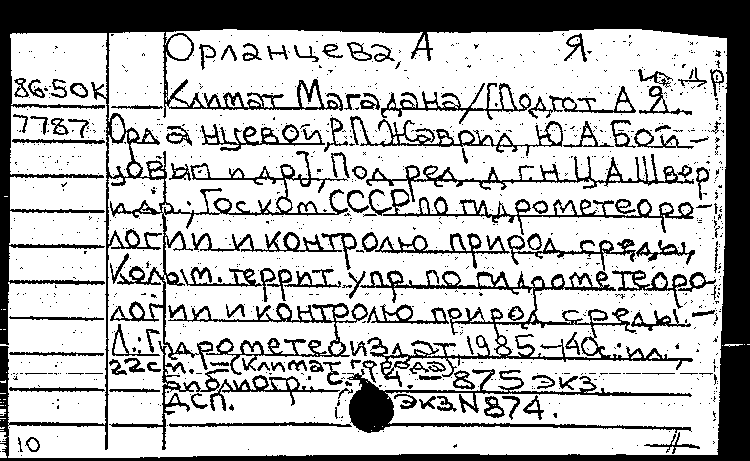 Орланцева, А Я.
и др
86-50К Климат Магадана/[Подгот А.Я.
7787 Орланцевой, Р.П.Жаврид, Ю.А.Бой-
цовым и др]; Под ред. д.г.н. Ц.А.Швер
и др.; Госком. СССР по гидрометеоро-
логии и контролю природ. среды,
Колым. террит. упр. по гидрометеоро-
логии и контролю природ. среды. -
Л.: Гидрометеоиздат 1985.-140с.: ил.;
22см. - (Климат города).
Библиогр.: с. - 875 экз.
ДСП. ЭКЗ.N874.
10